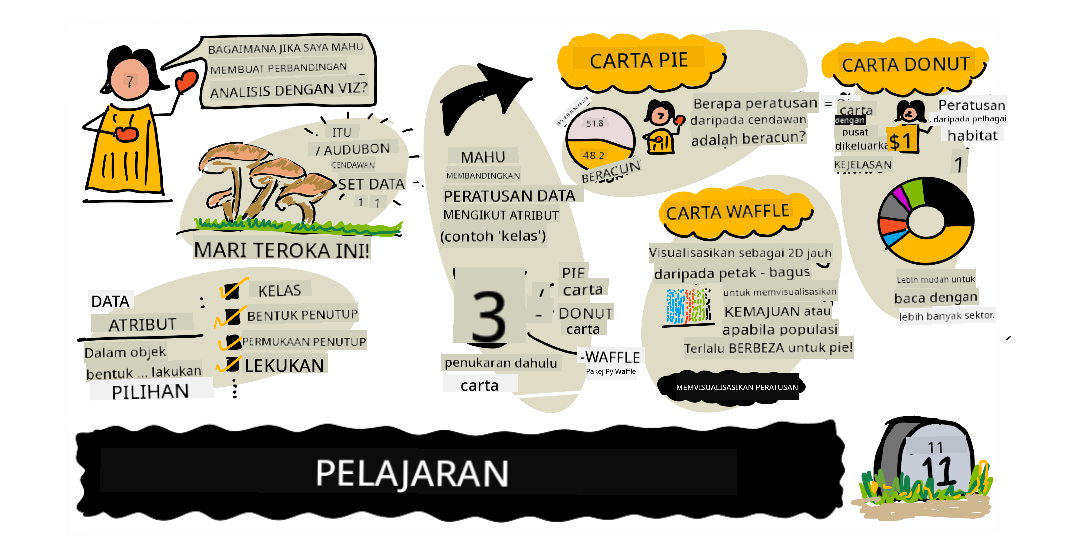 BAGAIMANA JIKA SAYA MAHU
MEMBUAT PERBANDINGAN
ANALISIS DENGAN VIZ?
7
ITU
/ AUDUBON
CENDAWAN
SET DATA
1 1
MARI TEROKA INI!
DATA
ATRIBUT
Dalam objek
bentuk ... lakukan
PILIHAN
KELAS
BENTUK PENUTUP
PERMUKAAN PENUTUP
LEKUKAN
MAHU
MEMBANDINGKAN
PERATUSAN DATA
MENGIKUT ATRIBUT
(contoh 'kelas')
3
penukaran dahulu
carta
PIE
carta
- DONUT
carta
-WAFFLE
Pakej Py Waffle
CARTA PIE
51.8
48.2
BERACUN
Berapa peratusan =
daripada cendawan
adalah beracun?
CARTA WAFFLE
Visualisasikan sebagai 2D jauh
daripada petak - bagus
untuk memvisualisasikan
KEMAJUAN atau
apabila populasi
Terlalu BERBEZA untuk pie!
MEMVISUALISASIKAN PERATUSAN
CARTA DONUT
carta
dengan
pusat
dikeluarka
KEJELASAN
$1
Peratusan
daripada pelbagai
habitat
1
Lebih mudah untuk
baca dengan
lebih banyak sektor.
PELAJARAN
11
11